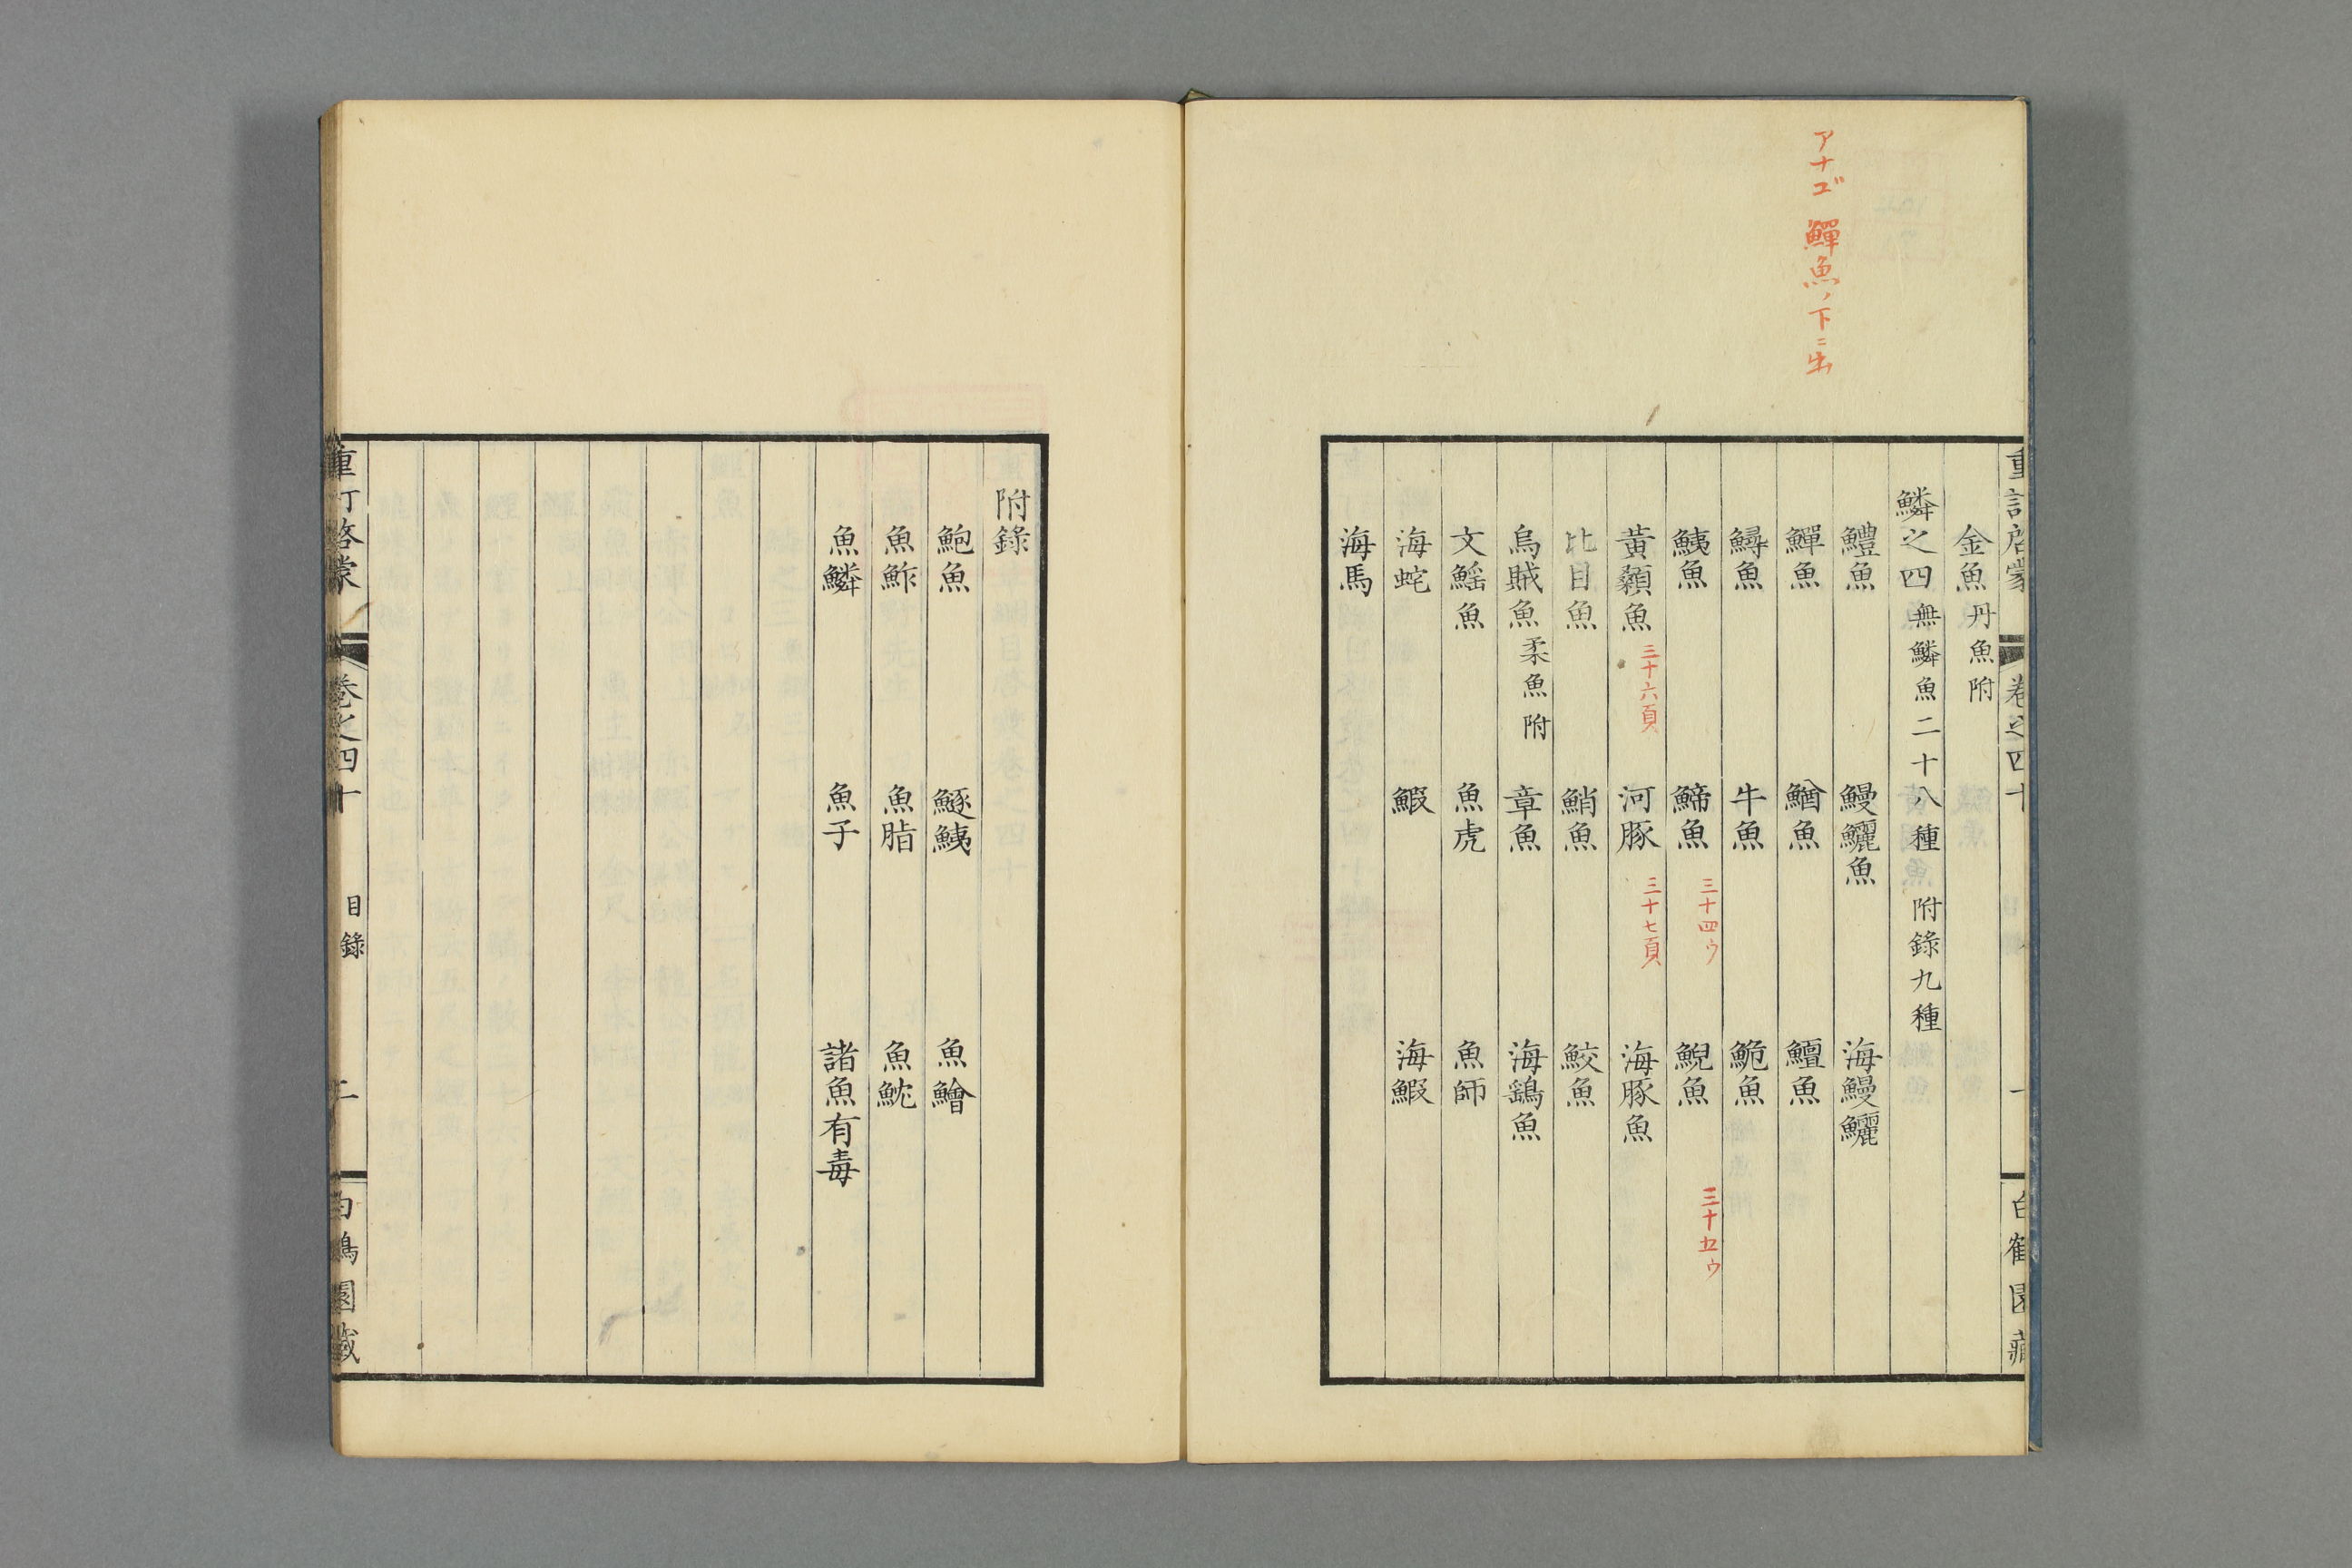 アナゴ 鱓魚ノ下ニ出
重訂啓蒙 卷之四十 一 白鶴園藏
金魚 丹魚附
鱗之四 無鱗魚二十八種 附錄九種
鱧魚 鰻鱺魚 海鰻鱺
鱓魚 鰌魚 鱣魚
鱘魚 牛魚 鮠魚
鮧魚 鯑魚 三十四ウ 鯢魚 三十五ウ
黃顙魚 三十六頁 河豚 三十七頁 海豚魚
比目魚 鮹魚 鮫魚
烏賊魚 柔魚附 章魚 海鷂魚
文鰩魚 魚虎 魚師
海蛇 鰕 海鰕
海馬
附錄
鮑魚 鱁鮧 魚鱠
魚鮓 魚脂 魚魫
魚鱗 魚子 諸魚有毒
重訂啓蒙 卷之四十 目錄 二 白鶴園藏